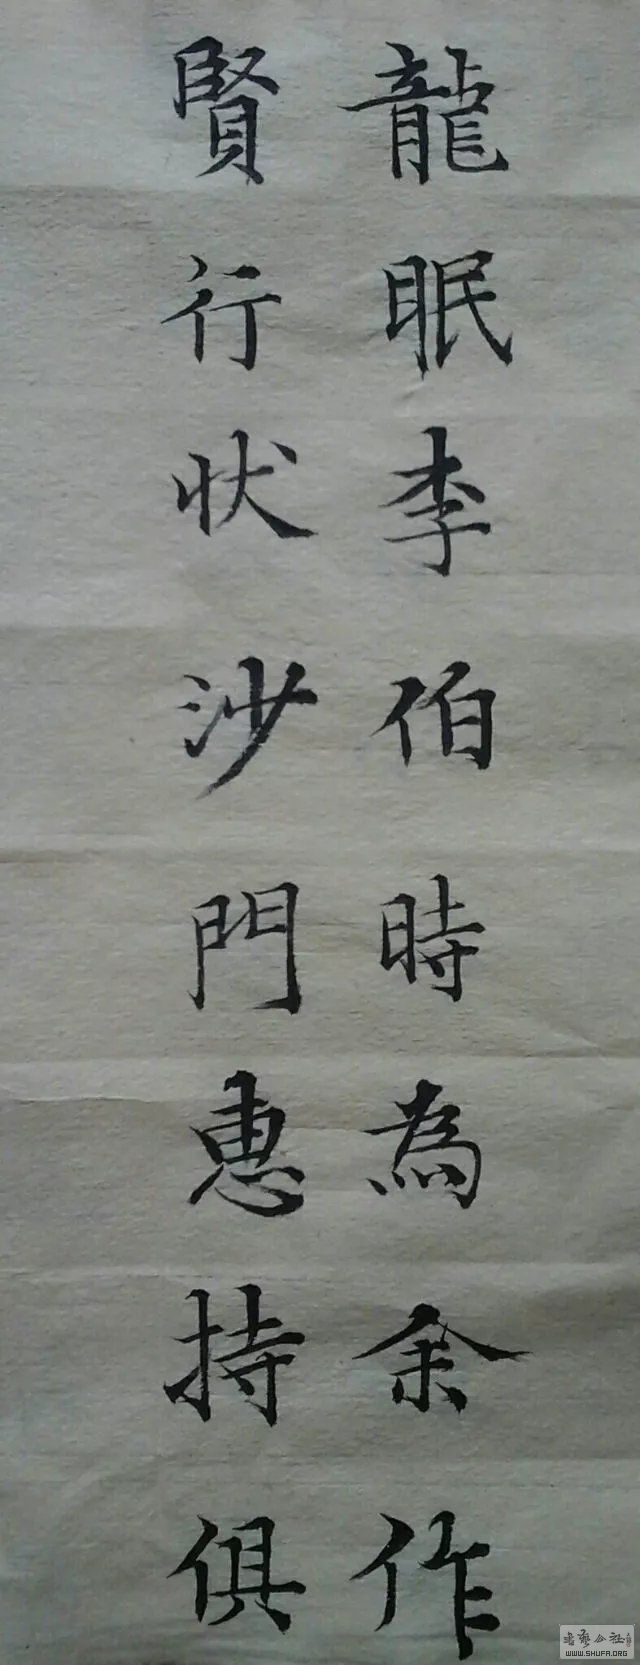 龍眠李伯時為余作
賢行状沙門惠持俱
書藝公社
WWW.SHUFA.ORG